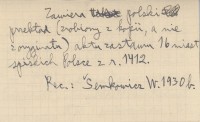 Zawiera polski
przekład (zrobiony z kopii, a nie
z oryginału) aktu zastawu 16 miast
spiskich Polsce z r. 1412.
Rec.: Semkowicz W. 1930 b.